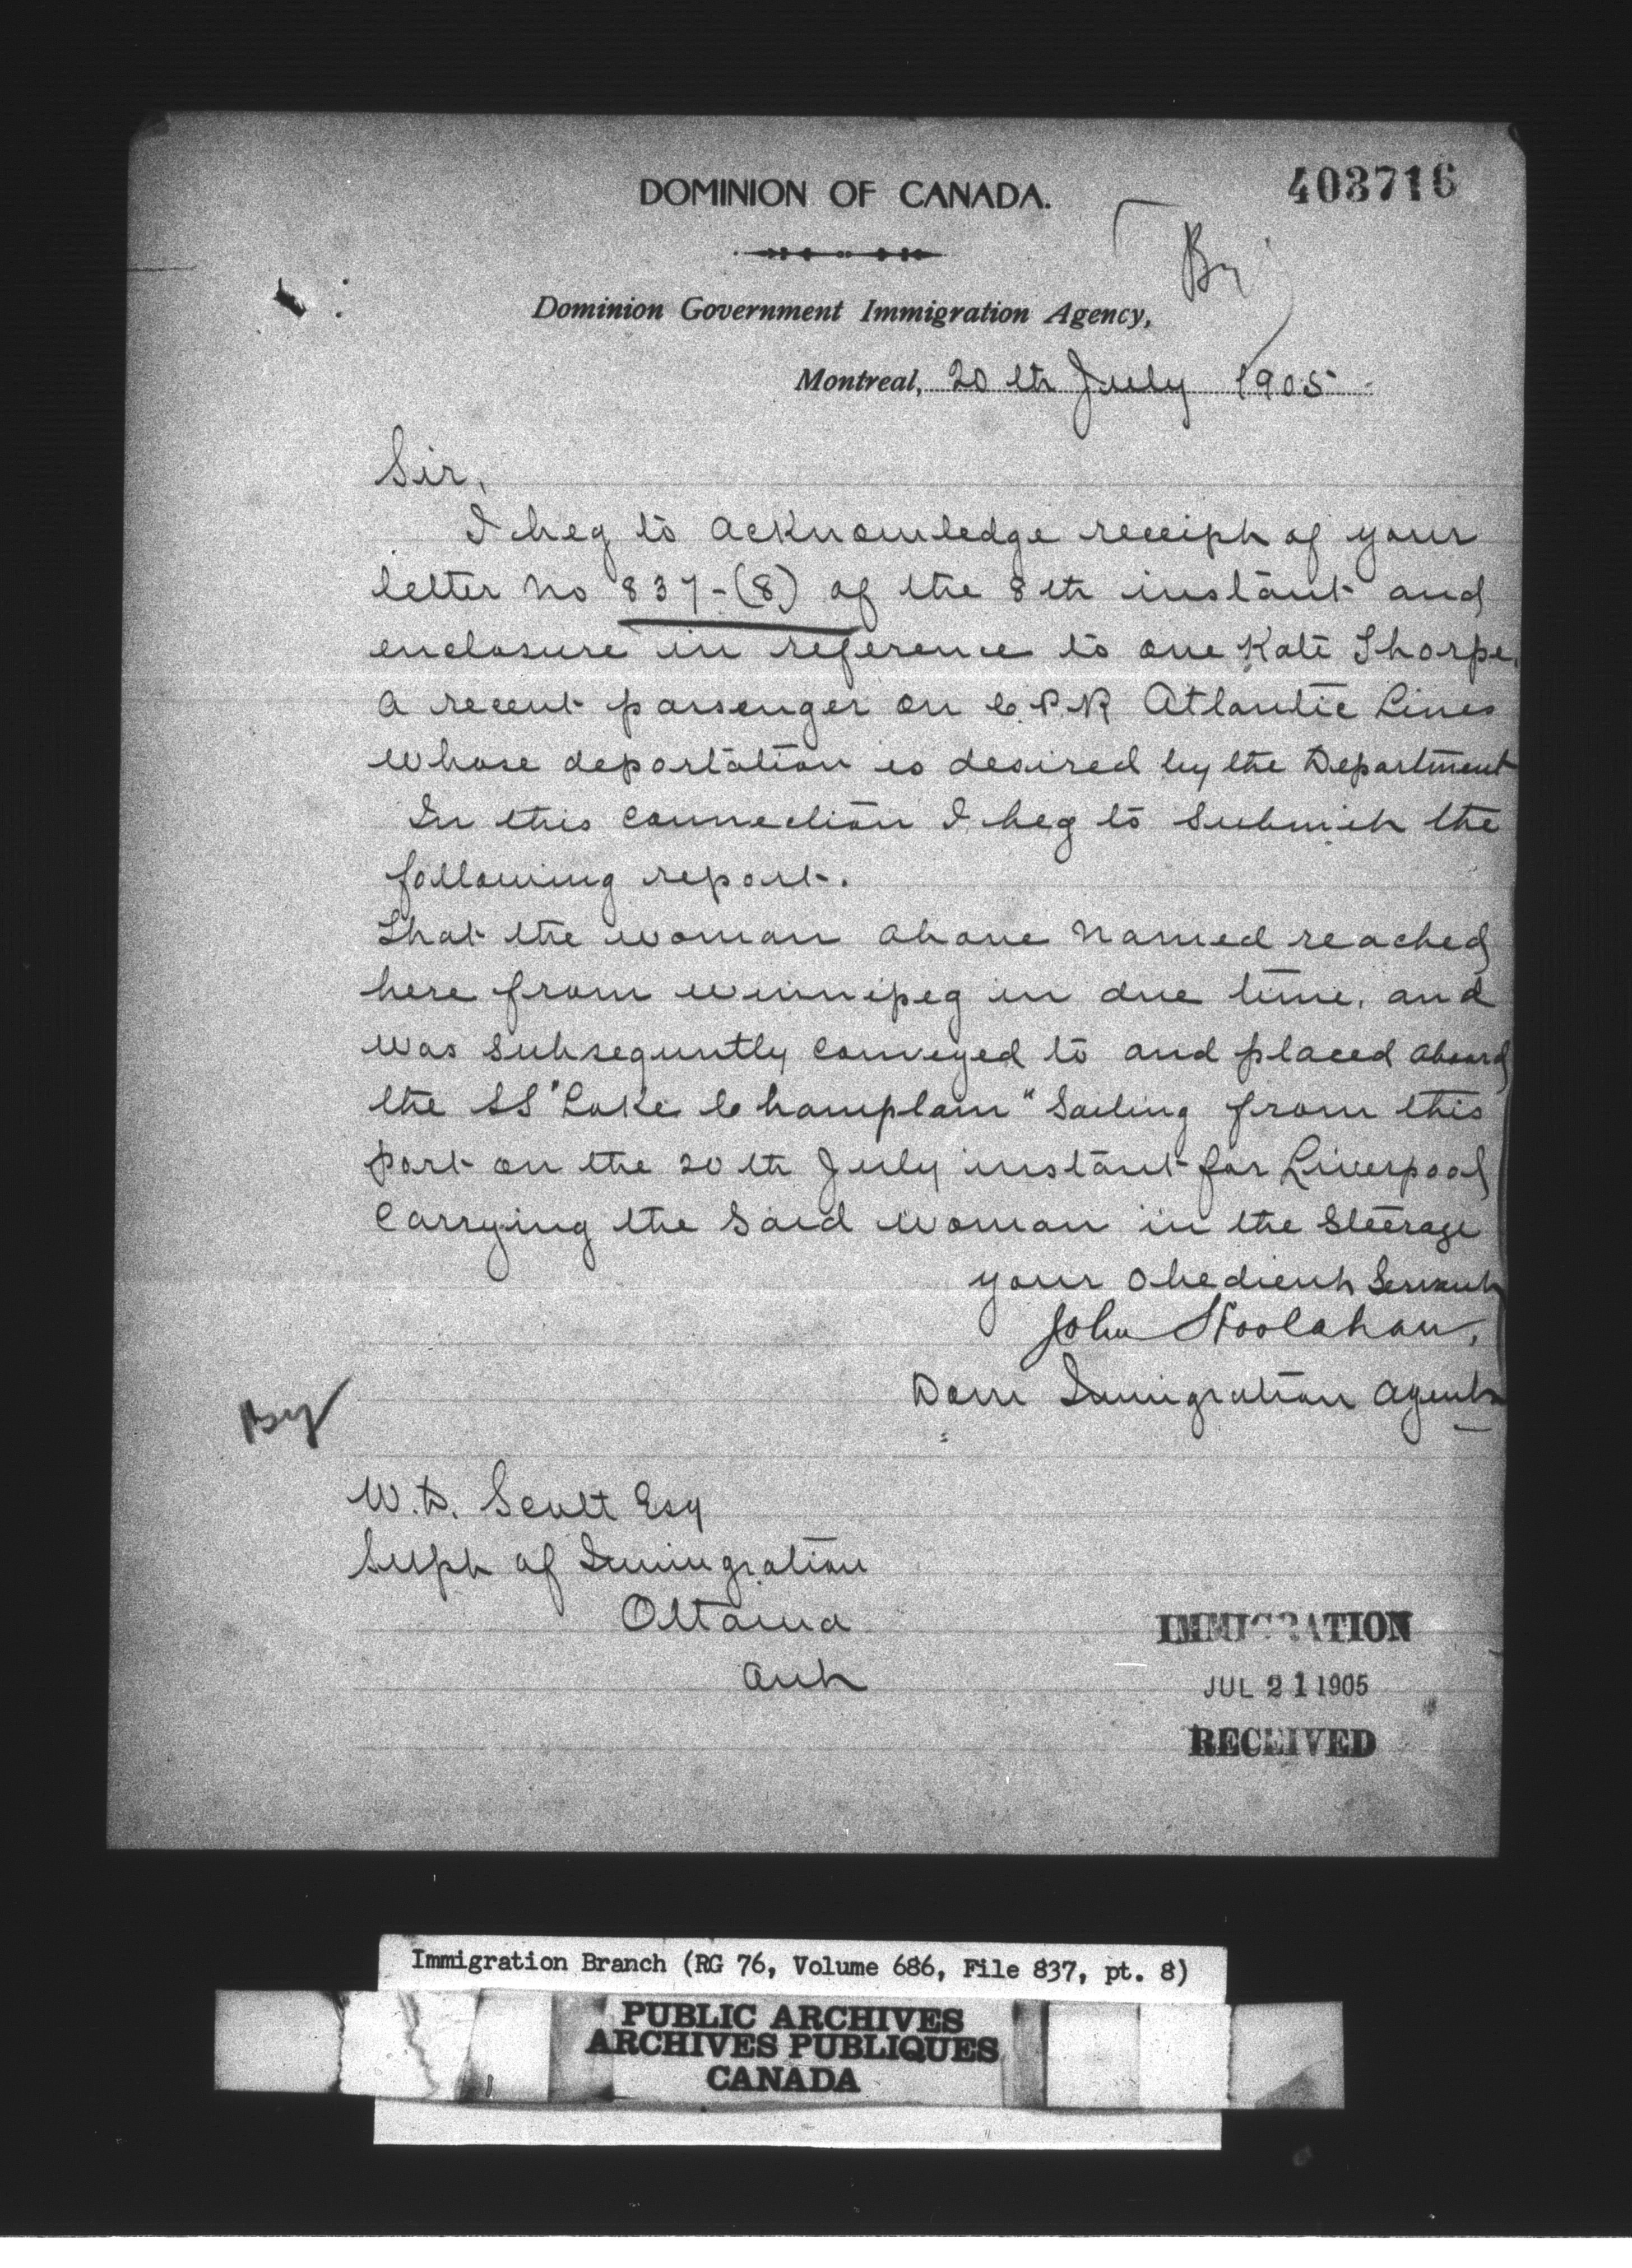 DOMINION OF CANADA.
403716
Dominion Government Immigration Agency,
Montreal, 20th July 1905
Sir,
I beg to acknowledge receipt of your
letter No 837-(8) of the 8th instant and
enclosure in reference to one Kate Thorpe,
a recent passenger on C.P.R Atlantic Lines
whose deportation is desired by the Department
In this connection I beg to submit the
following report.
That the woman above named reached
here from Winnipeg in due time, and
was subsequntly conveyed to and placed aboard
the SS "Lake Champlain" Sailing from this
port on the 20th July instant for Liverpool
Carrying the said woman in the Steerage
your obedient Servant
John Hoolahan,
Dom Immigration Agent
W.D. Scott Esq
Supt of Immigration
Ottawa
Ont
IMMIGRATION
JUL 21 1905
RECEIVED
Immigration Branch (RG 76, Volume 686, File 837, pt. 8)
PUBLIC ARCHIVES
ARCHIVES PUBLIQUES
CANADA